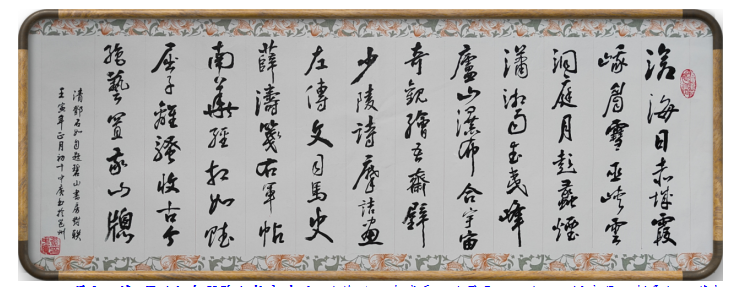 滄海日赤城霞
峨眉雪巫峽雲
洞庭月彭蠡煙
瀟湘雨武夷峰
廬山瀑布合宇宙
奇觀繪吾齋壁
少陵詩摩詰畫
左傳文司馬史
薛濤箋右軍帖
南華經相如賦
屈子離騷收古今
絕藝置我山牕
清鄧石如自題碧山書房對聯
壬寅年正月初十中廣書於